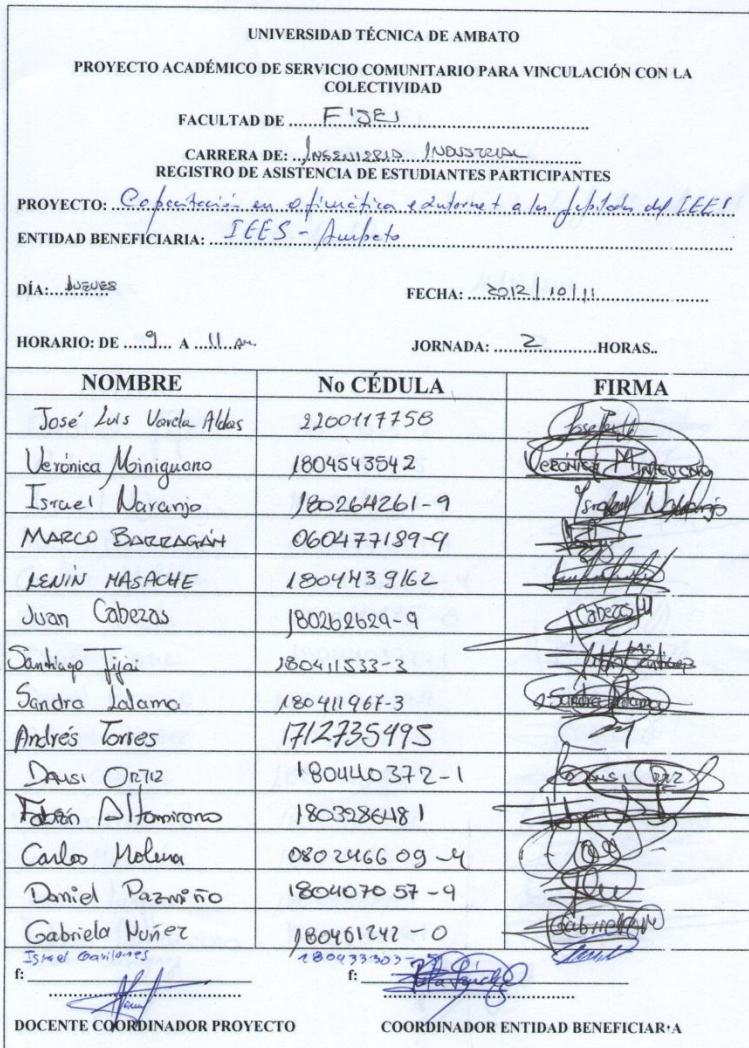 UNIVERSIDAD TÉCNICA DE AMBATO
PROYECTO ACADÉMICO DE SERVICIO COMUNITARIO PARA VINCULACIÓN CON LA
COLECTIVIDAD
FACULTAD DE ...FISEI...
CARRERA DE: ...INGENIERIA INDUSTRIAL...
REGISTRO DE ASISTENCIA DE ESTUDIANTES PARTICIPANTES
PROYECTO: Capacitación en ofimática e internet a los jubilados del IEES
ENTIDAD BENEFICIARIA: IEES - Ambato
DÍA: JUEVES FECHA: 2012/10/11
HORARIO: DE 9 A 11 am. JORNADA: 2 HORAS..
NOMBRE No CÉDULA FIRMA
José Luis Varela Aldas 2200117758
Verónica Miniguano 1804543542 VERÓNICA MINIGUANO
Israel Naranjo 180264261-9 Israel Naranjo
MARCO BARRAGÁN 060477189-9
LENIN MASACHE 1804439162
Juan Cabezas 180262629-9 Cabezas
Santiago 180411533-3
Sandra Lalama 180411967-3 Sandra Lalama
Andrés Torres 1712735495
DAYSI ORTIZ 180440372-1 DAYSI ORTIZ
Fabián Altamirano 180328648 1
Carlos Molina 0802466 09-4
Daniel Pazmiño 1804070 57-9
Gabriela Nuñez 180461242-0 Gabriela N
Israel Gavilanes 180433303-
f: f:
DOCENTE COORDINADOR PROYECTO COORDINADOR ENTIDAD BENEFICIARIA